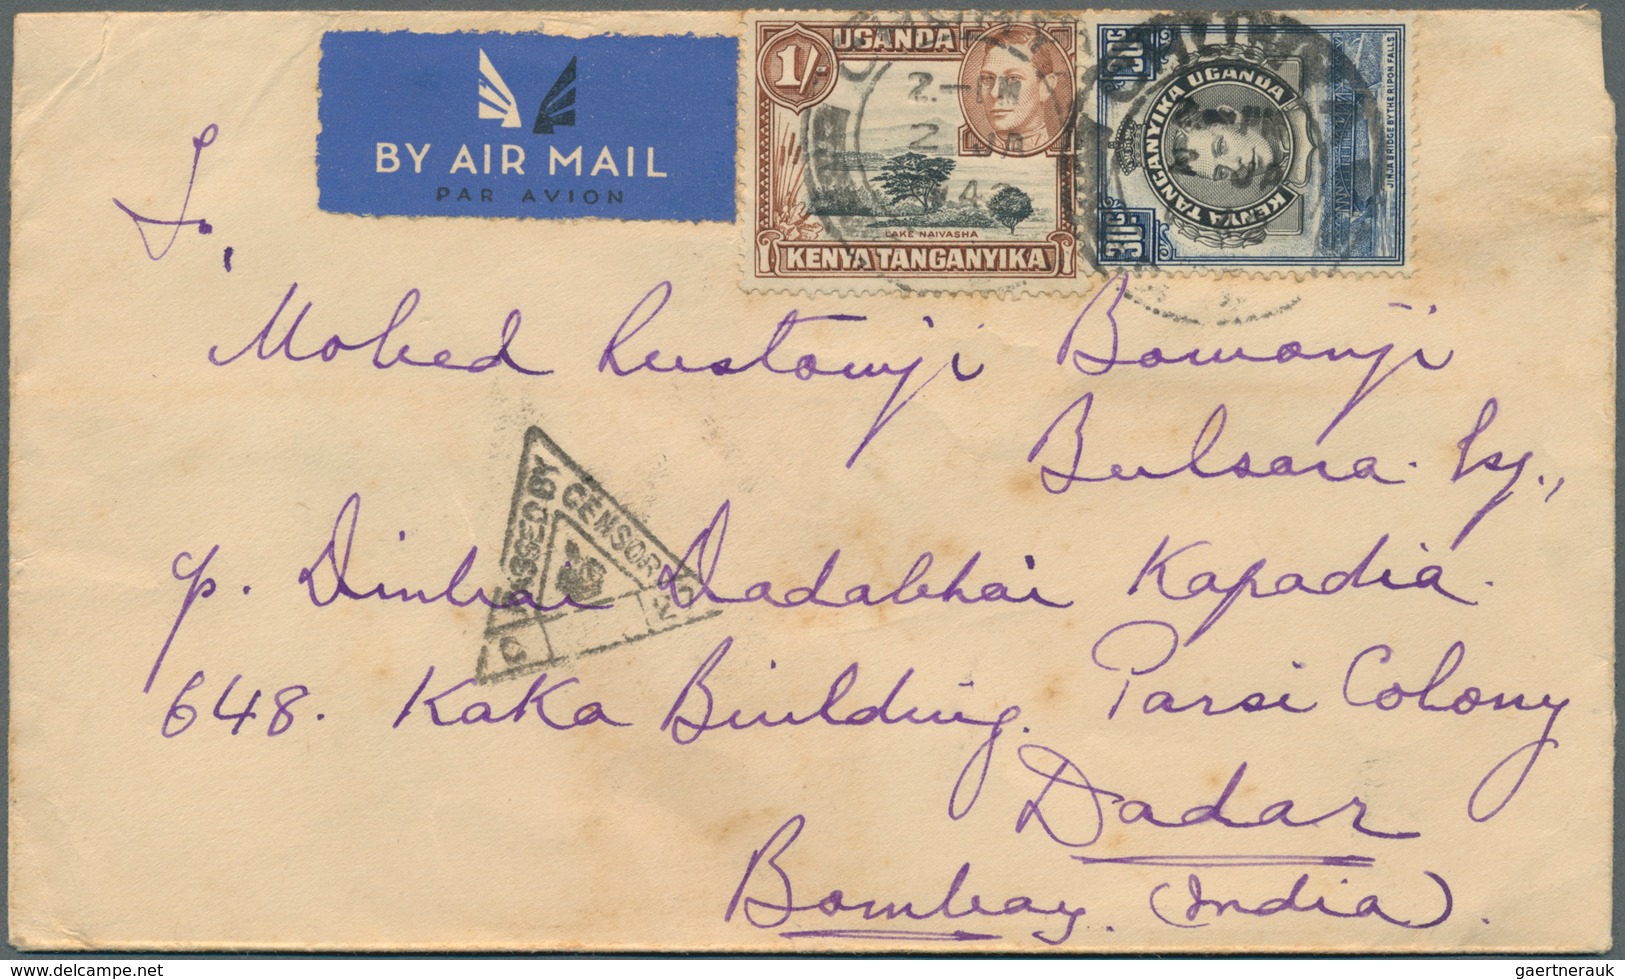 BY AIR MAIL
PAR AVION
UGANDA
1/-
LAKE NAIVASHA
KENYA TANGANYIKA
30C
KENYA TANGANYIKA UGANDA
30C
JINJA BRIDGE BY THE RIPON FALLS
2.-PM
2
42
Mohed Rustomji Bomonji
Bulsara. Esq.,
c/o. Dinbai Dadabhai Kapadia.
648. Kaka Building. Parsi Colony
Dadar
Bombay. (India).
PASSED BY CENSOR
C
2
www.delcampe.net
gaertnerauk